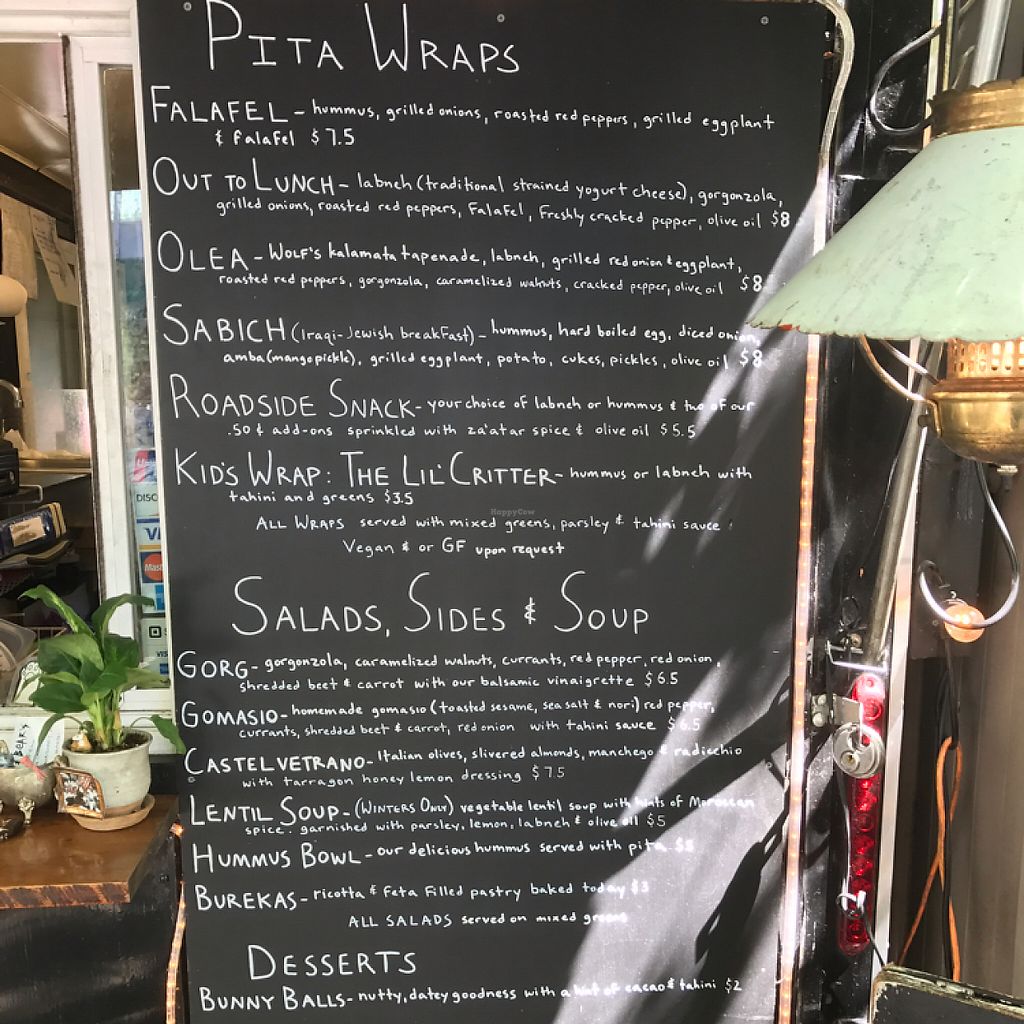 PITA WRAPS
FALAFEL - hummus, grilled onions, roasted red peppers, grilled eggplant
& falafel $7.5
OUT TO LUNCH - labneh (traditional strained yogurt cheese), gorgonzola,
grilled onions, roasted red peppers, Falafel, Freshly cracked pepper, olive oil $8
OLEA - Wolf's kalamata tapenade, labneh, grilled red onion & eggplant,
roasted red peppers, gorgonzola, caramelized walnuts, cracked pepper, olive oil $8
SABICH (Iraqi-Jewish breakfast) - hummus, hard boiled egg, diced onion,
amba (mango pickle), grilled eggplant, potato, cukes, pickles, olive oil $8
ROADSIDE SNACK - your choice of labneh or hummus & two of our
.50¢ add-ons sprinkled with za'atar spice & olive oil $5.5
KID'S WRAP: THE LIL' CRITTER - hummus or labneh with
tahini and greens $3.5
HappyCow
ALL WRAPS served with mixed greens, parsley & tahini sauce
Vegan & or GF upon request
SALADS, SIDES & SOUP
GORG - gorgonzola, caramelized walnuts, currants, red pepper, red onion,
shredded beet & carrot with our balsamic vinaigrette $6.5
GOMASIO - homemade gomasio (toasted sesame, sea salt & nori) red pepper,
currants, shredded beet & carrot, red onion with tahini sauce $6.5
CASTELVETRANO - Italian olives, slivered almonds, manchego & radicchio
with tarragon honey lemon dressing $7.5
LENTIL SOUP - (WINTERS ONLY) vegetable lentil soup with hints of Moroccan
spice. garnished with parsley, lemon, labneh & olive oil $5
HUMMUS BOWL - our delicious hummus served with pita
BUREKAS - ricotta & feta filled pastry baked today $3
ALL SALADS served on mixed greens
DESSERTS
BUNNY BALLS - nutty, datey goodness with a hint of cacao & tahini $2
DISC
VISA